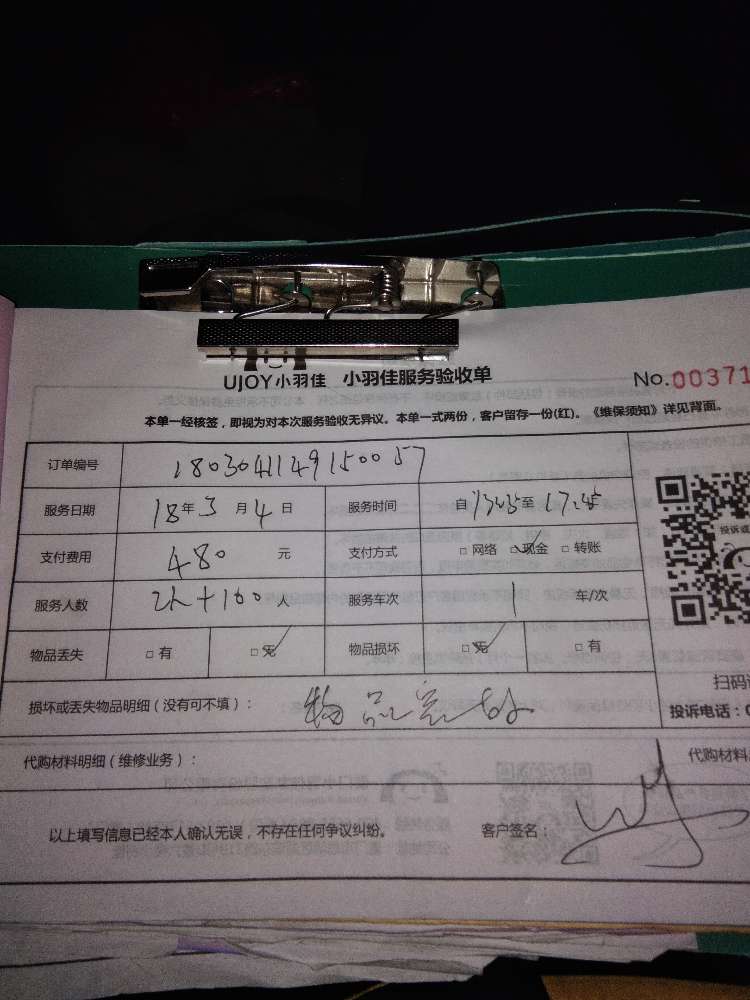 UJOY小羽佳 小羽佳服务验收单
No.00371
本单一经核签，即视为对本次服务验收无异议。本单一式两份，客户留存一份(红)。《维保须知》详见背面。
订单编号 1803041149150057
服务日期 18年3月4日 服务时间 自13:45至17:45
支付费用 480 元 支付方式 □网络 ☑现金 □转账
服务人数 2人+100人 服务车次 1 车/次
物品丢失 □有 ☑无 物品损坏 ☑无 □有
损坏或丢失物品明细（没有可不填）： 物品完好
扫码
投诉电话：0
代购材料明细（维修业务）： 代购材料
以上填写信息已经本人确认无误，不存在任何争议纠纷。 客户签名：